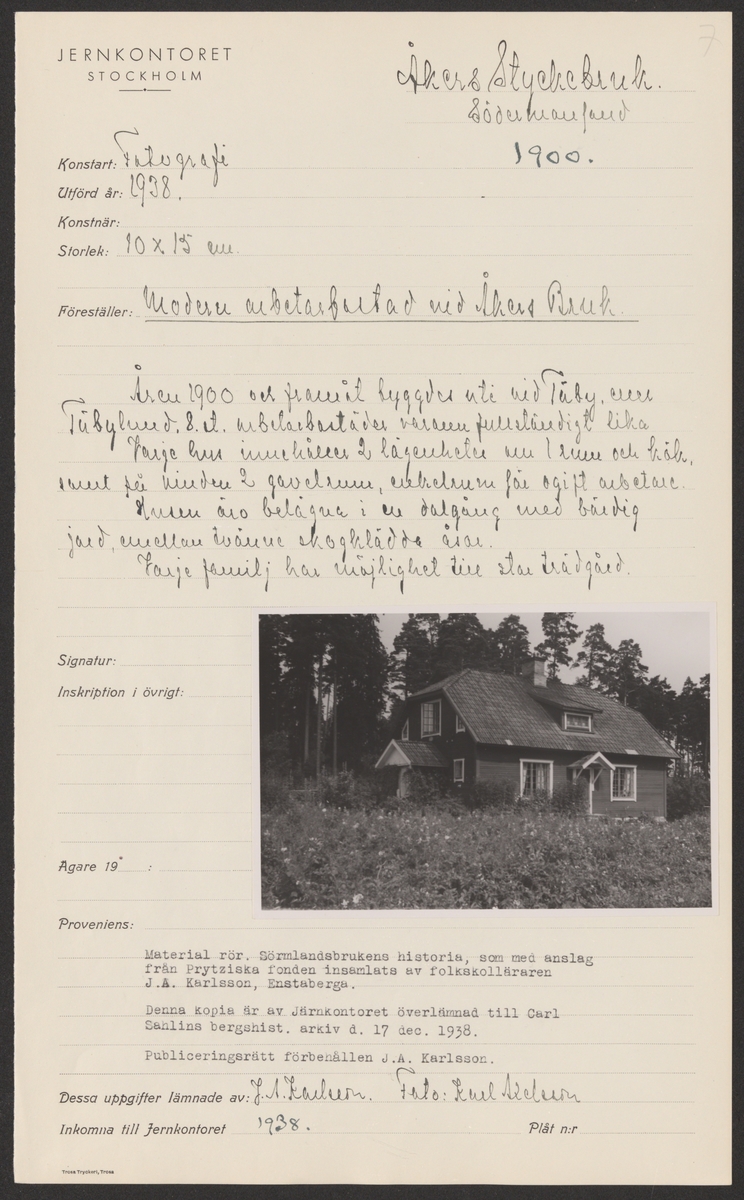 7
JERNKONTORET
STOCKHOLM
Åkers Styckebruk.
Södermanland
1900.
Konstart: Fotografi
Utförd år: 1938.
Konstnär:
Storlek: 10 x 15 cm.
Föreställer: Modern arbetarbostad vid Åkers Bruk.
Åren 1900 och framåt byggdes ute vid Täby,
Täbylund, 8. st. arbetarbostäder varann fullständigt lika
Varje hus innehåller 2 lägenheter om 1 rum och kök,
samt på vinden 2 gavelrum, enkelrum för ogift arbetare.
Husen äro belägna i en dalgång med bördig
jord, emellan tvänne skogklädda åsar.
Varje familj har möjlighet till stor trädgård.
Signatur:
Inskription i övrigt:
Ägare 19 :
Proveniens:
Material rör. Sörmlandsbrukens historia, som med anslag
från Prytziska fonden insamlats av folkskolläraren
J.A. Karlsson, Enstaberga.
Denna kopia är av Järnkontoret överlämnad till Carl
Sahlins bergshist. arkiv d. 17 dec. 1938.
Publiceringsrätt förbehållen J.A. Karlsson.
Dessa uppgifter lämnade av: J. A. Karlsson. Foto: Karl Axelsson
Inkomna till Jernkontoret 1938. Plåt n:r
Trosa Tryckeri, Trosa